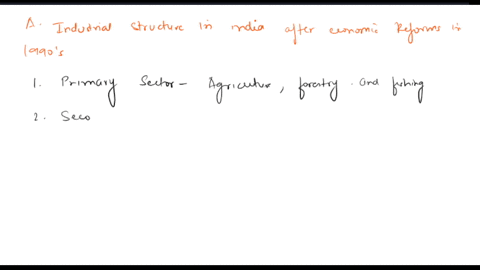 A. Industrial structure in india after economic Reforms in
1990's
1. Primary Sector - Agriculture, forestry and fishing
2. Seco